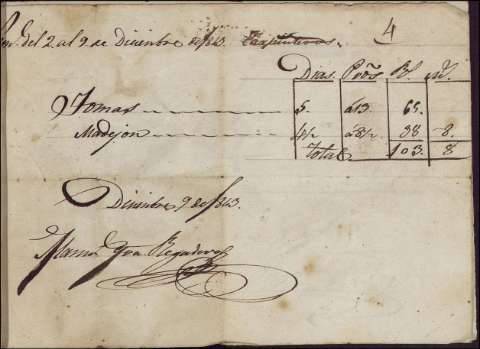 4
del 2 al 9 de Diciembre de 1843. Carpinteros.
Dias Prós Rs. Ms.
Tomas 5. á13. 65.
Madejon 4½ á8½. 38 8.
Total 103. 8
Diciembre 9 de 1843.
Manu